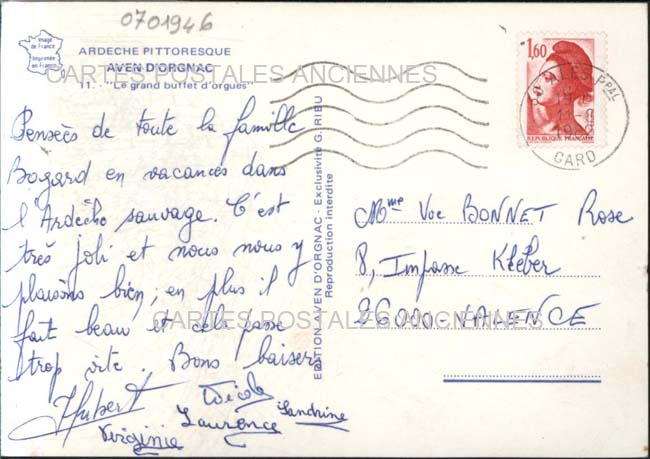 0701946
Image
de France
Imprimée
en France
ARDECHE PITTORESQUE
AVEN D'ORGNAC
11. - "Le grand buffet d'orgues"
CARTES POSTALES ANCIENNES
Pensées de toute la famille
Bogard en vacances dans
l'Ardèche sauvage. C'est
très joli et nous nous y
plaisons bien, en plus il
fait beau et cela passe
trop vite. Bons baisers
Hubert Nicole
Virginie Laurence Sandrine
EDITION AVEN D'ORGNAC - Exclusivité G. RIEU
Reproduction interdite
1,60
REPUBLIQUE FRANÇAISE
ALES PPAL
GARD
Mme Vve BONNET Rose
8, Impasse Kléber
26000 - VALENCE
CARTES POSTALES ANCIENNES